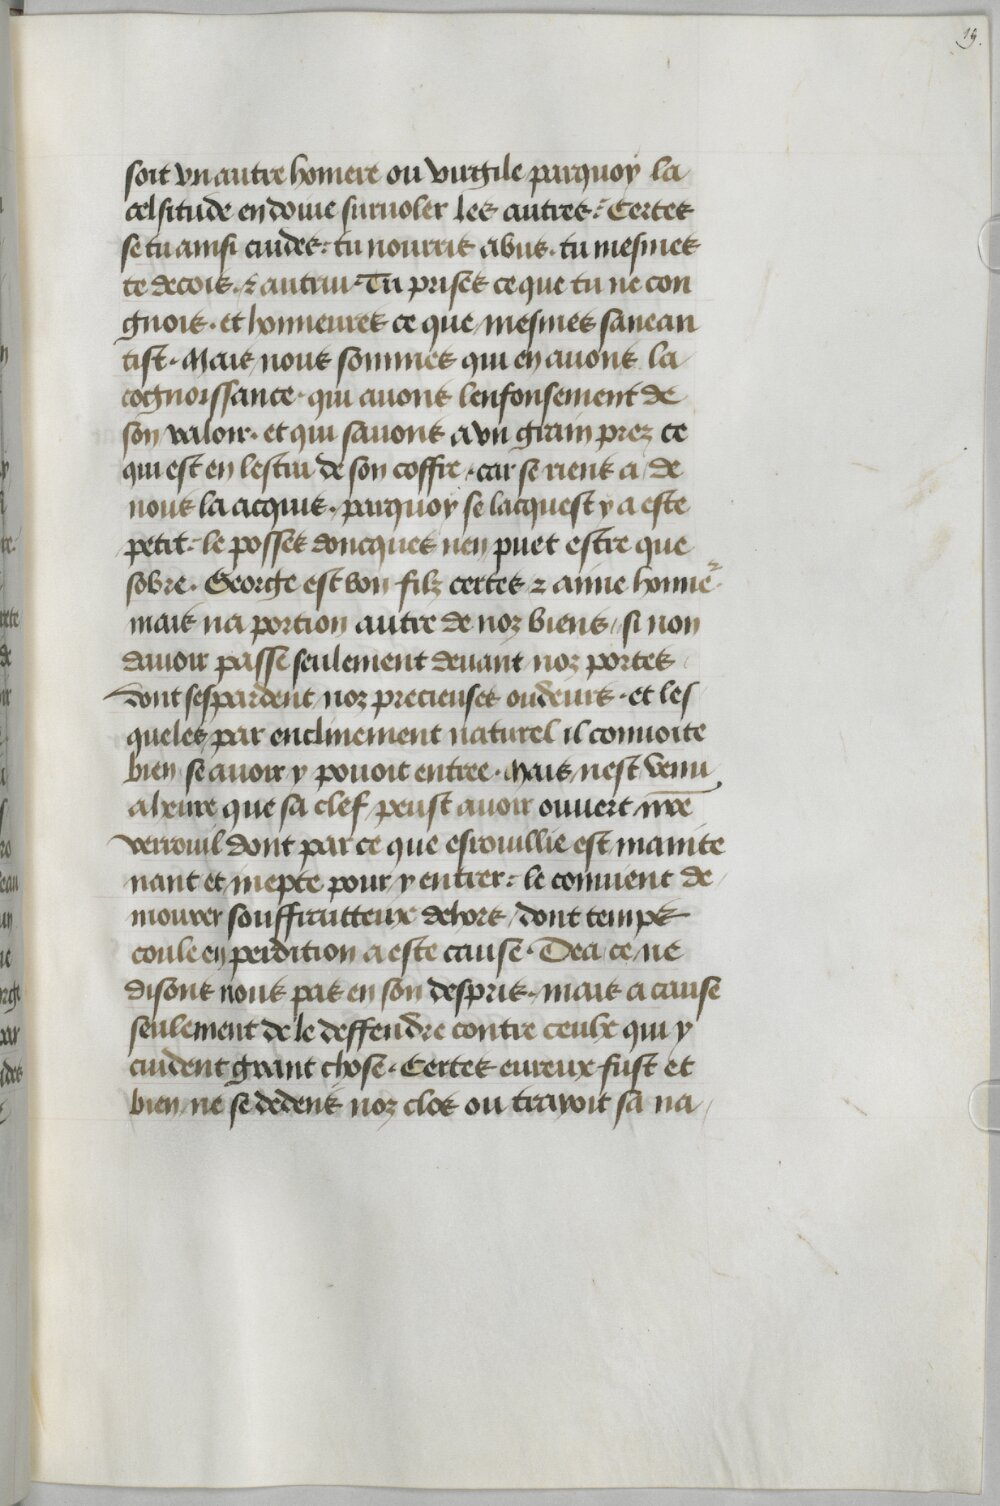 19.
soit vn autre homere ou virgile parquoy la
celsitude en doiue suruoler les autres. Certes
se tu ainsi cuides: tu nourris abus. tu mesmes
te decois. ⁊ autrui. Tu prises ce que tu ne con
gnois. et honneures ce que mesmes sanean
tist. Mais nous sommes qui en auons la
cognoissance. qui auons lenfonsement de
son valoir. et qui sauons a vn grain prez ce
qui est en lestui de son coffre. car se riens a de
nous la acquis. parquoy se lacquest y a este
petit: le posses doncques nen puet estre que
sobre. George est bon filz certes ⁊ aime honne᷒.
mais na portion autre de noz biens, si non
dauoir passe seulement deuant noz portes
dont sespardent noz precieuses oudeurs. et les
queles par enclinement naturel il conuoite
bien se auoir y pouoit entree. Mais nest venu
a heure que sa clef peust auoir ouuert nr̃e
verrouil dont par ce que esrouillie est mainte
nant et inepte pour y entrer: le conuient de
mourer souffraitteux dehors, dont temps
coule en perdition a este cause. Dea ce ne
disons nous pas en son despris. mais a cause
seulement de le deffendre contre ceulx qui y
cuident grant chose. Certes eureux fust et
bien ne se dedens noz clos ou trayoit sa na